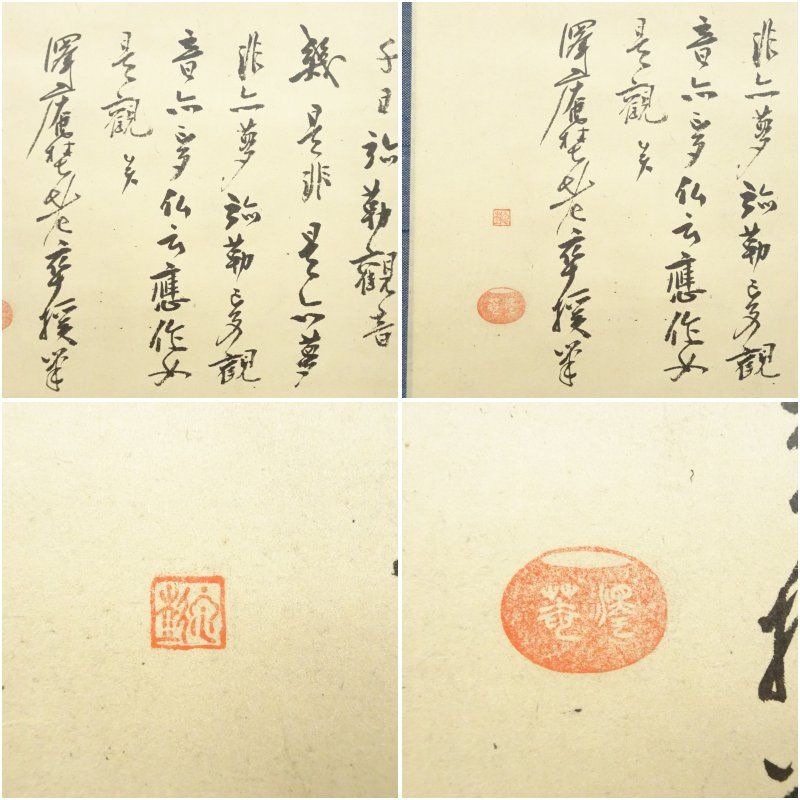 千日弥勒觀音
幾是非是亦夢
非亦夢弥勒夢觀
音亦夢仏云應作如
是觀矣
澤庵埜老卒援筆
非亦夢弥勒夢觀
音亦夢仏云應作如
是觀矣
澤庵埜老卒援筆
澤菴
澤菴